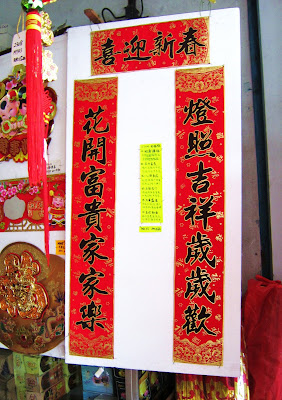 喜迎新春
燈照吉祥歲歲歡
花開富貴家家樂